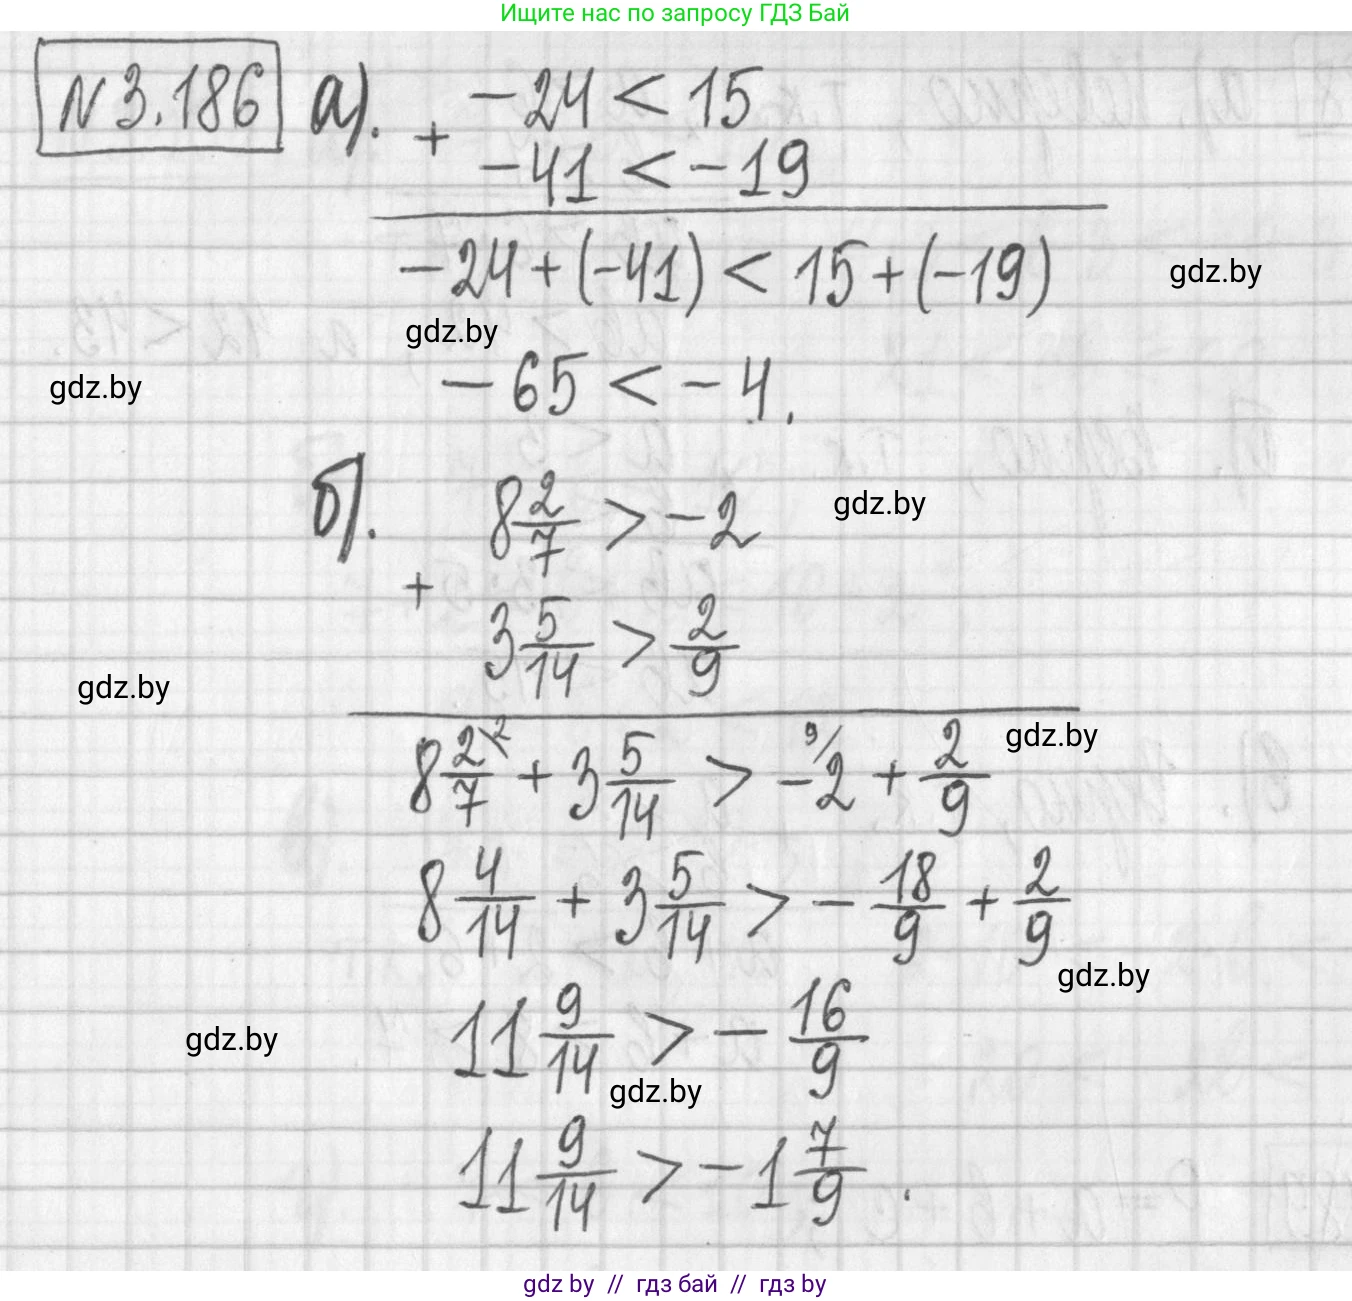 Ищите нас по запросу ГДЗ Бай
№3.186 а). -24 < 15
+
-41 < -19
-24+(-41) < 15+(-19)
gdz.by
gdz.by
-65 < -4.
gdz.by
б). 8 2/7 > -2
gdz.by
+
3 5/14 > 2/9
gdz.by
8 2/7 \2 + 3 5/14 > 9/ -2 + 2/9
gdz.by
8 4/14 + 3 5/14 > - 18/9 + 2/9
gdz.by
11 9/14 > - 16/9
gdz.by
gdz.by
11 9/14 > -1 7/9.
gdz by // гдз бай // гдз by